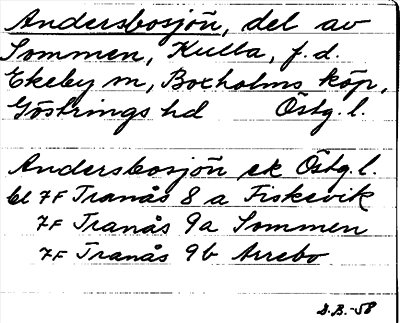 Andersbosjön, del av
Sommen, Kulla, f.d.
Ekeby sn, Boxholms köp,
Göstrings hd Östg. l.
Andersbosjön ek Östg. l.
bl 7F Tranås 8 a Fiskevik
7F Tranås 9a Sommen
7F Tranås 9b Arrebo
S.B.-58